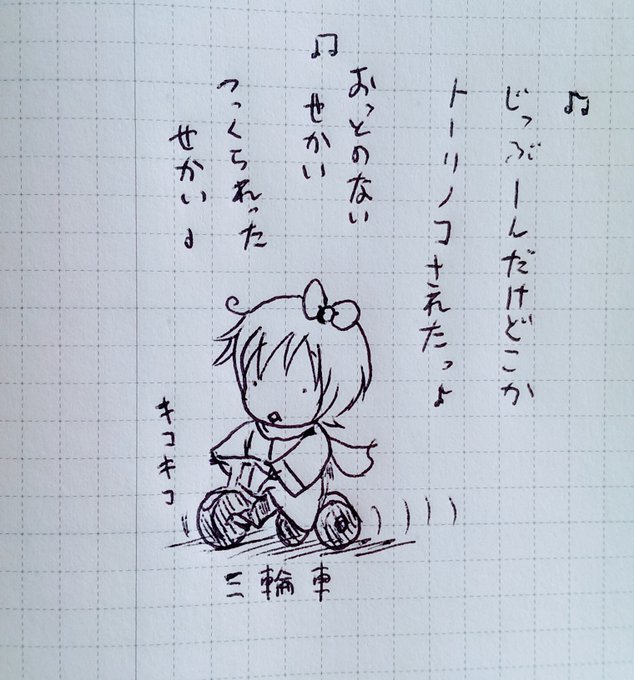 ♫
じっぶーんだけどこか
トーリノコされたっょ
♫
おっとのない
せかい
つっくられった
せかい♩
キコキコ
三輪車